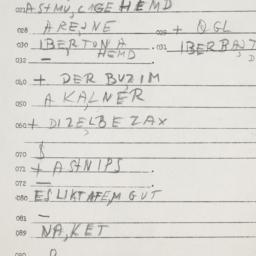 021 ASTMU, CAGE HEMD
028 AREJNE + QGL
030 IBERTONA 031 IBERBAJT
HEMD
032 —
040 + DER BUZIM
050 A KALNER
060 + DIZELBE ZAX
070 $
071 + ASTNIPS
072 —
080 ESLIKTAFEM GUT
081 —
089 NA, KET
090